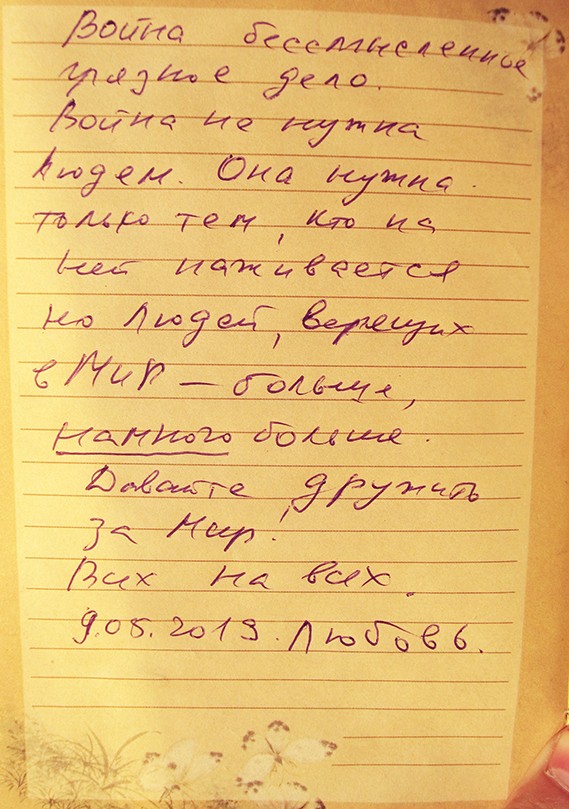 Война бессмысленное
грязное дело.
Война не нужна
людем. Она нужна
только тем, кто на
ней наживается
но людей, верещих
в Мир – больше,
намного больше.
Давайте дружить
за Мир!
Вих на всех.
9.05.2019. Любовь.